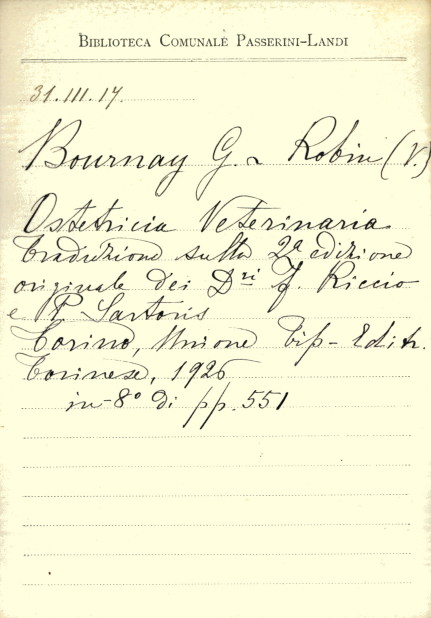 BIBLIOTECA COMUNALE PASSERINI-LANDI
31.III.17.
Bournay G. ~ Robin (V.)
Ostetricia Veterinaria
Traduzione sulla 2ª edizione
originale dei D.ri F. Riccio
e P. Sartoris
Torino, Unione Tip-Editr.
Torinese, 1926
in-8° di pp. 551